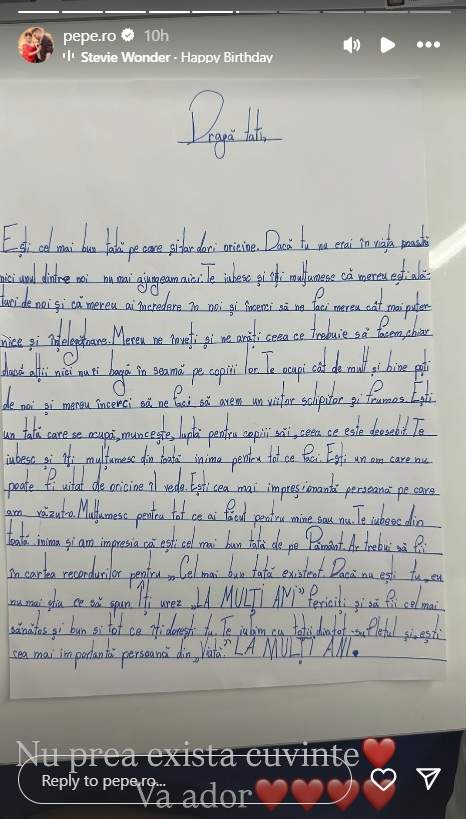 pepe.ro 10h
Stevie Wonder · Happy Birthday
Dragă tati,
Ești cel mai bun tată pe care și-l-ar dori oricine. Dacă tu nu erai în viața noastră
nici unul dintre noi nu mai ajungeam aici. Te iubesc și îți mulțumesc că mereu ești ală-
turi de noi și că mereu ai încredere în noi și încerci să ne faci mereu cât mai puter-
nice și înțelegătoare. Mereu ne înveți și ne arăți ceea ce trebuie să facem, chiar
dacă alții nici nu îi bagă în seamă pe copiii lor. Te ocupi cât de mult și bine poți
de noi și mereu încerci să ne faci să avem un viitor sclipitor și frumos. Ești
un tată care se ocupă, muncește, luptă pentru copiii săi, ceea ce este deosebit. Te
iubesc și îți mulțumesc din toată inima pentru tot ce faci. Ești un om care nu
poate fi uitat de oricine îl vede. Ești cea mai impresionantă persoană pe care
am văzut-o. Mulțumesc pentru tot ce ai făcut pentru mine sau nu. Te iubesc din
toată inima și am impresia că ești cel mai bun tată de pe Pământ. Ar trebui să fii
în cartea recordurilor pentru „Cel mai bun tată existent. Dacă nu ești tu, eu
nu mai știu ce să spun. Îți urez „LA MULȚI ANI" fericiți și să fii cel mai
sănătos și bun și tot ce îți dorești tu. Te iubim cu toții din tot su-fletul și, ești
cea mai importantă persoană din „Viață." LA MULȚI ANI.
Nu prea exista cuvinte❤️
Reply to pepe.ro...
Va ador❤️❤️❤️❤️